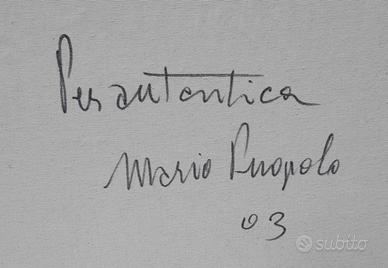 Per autentica
Mario Puopolo
03
subito